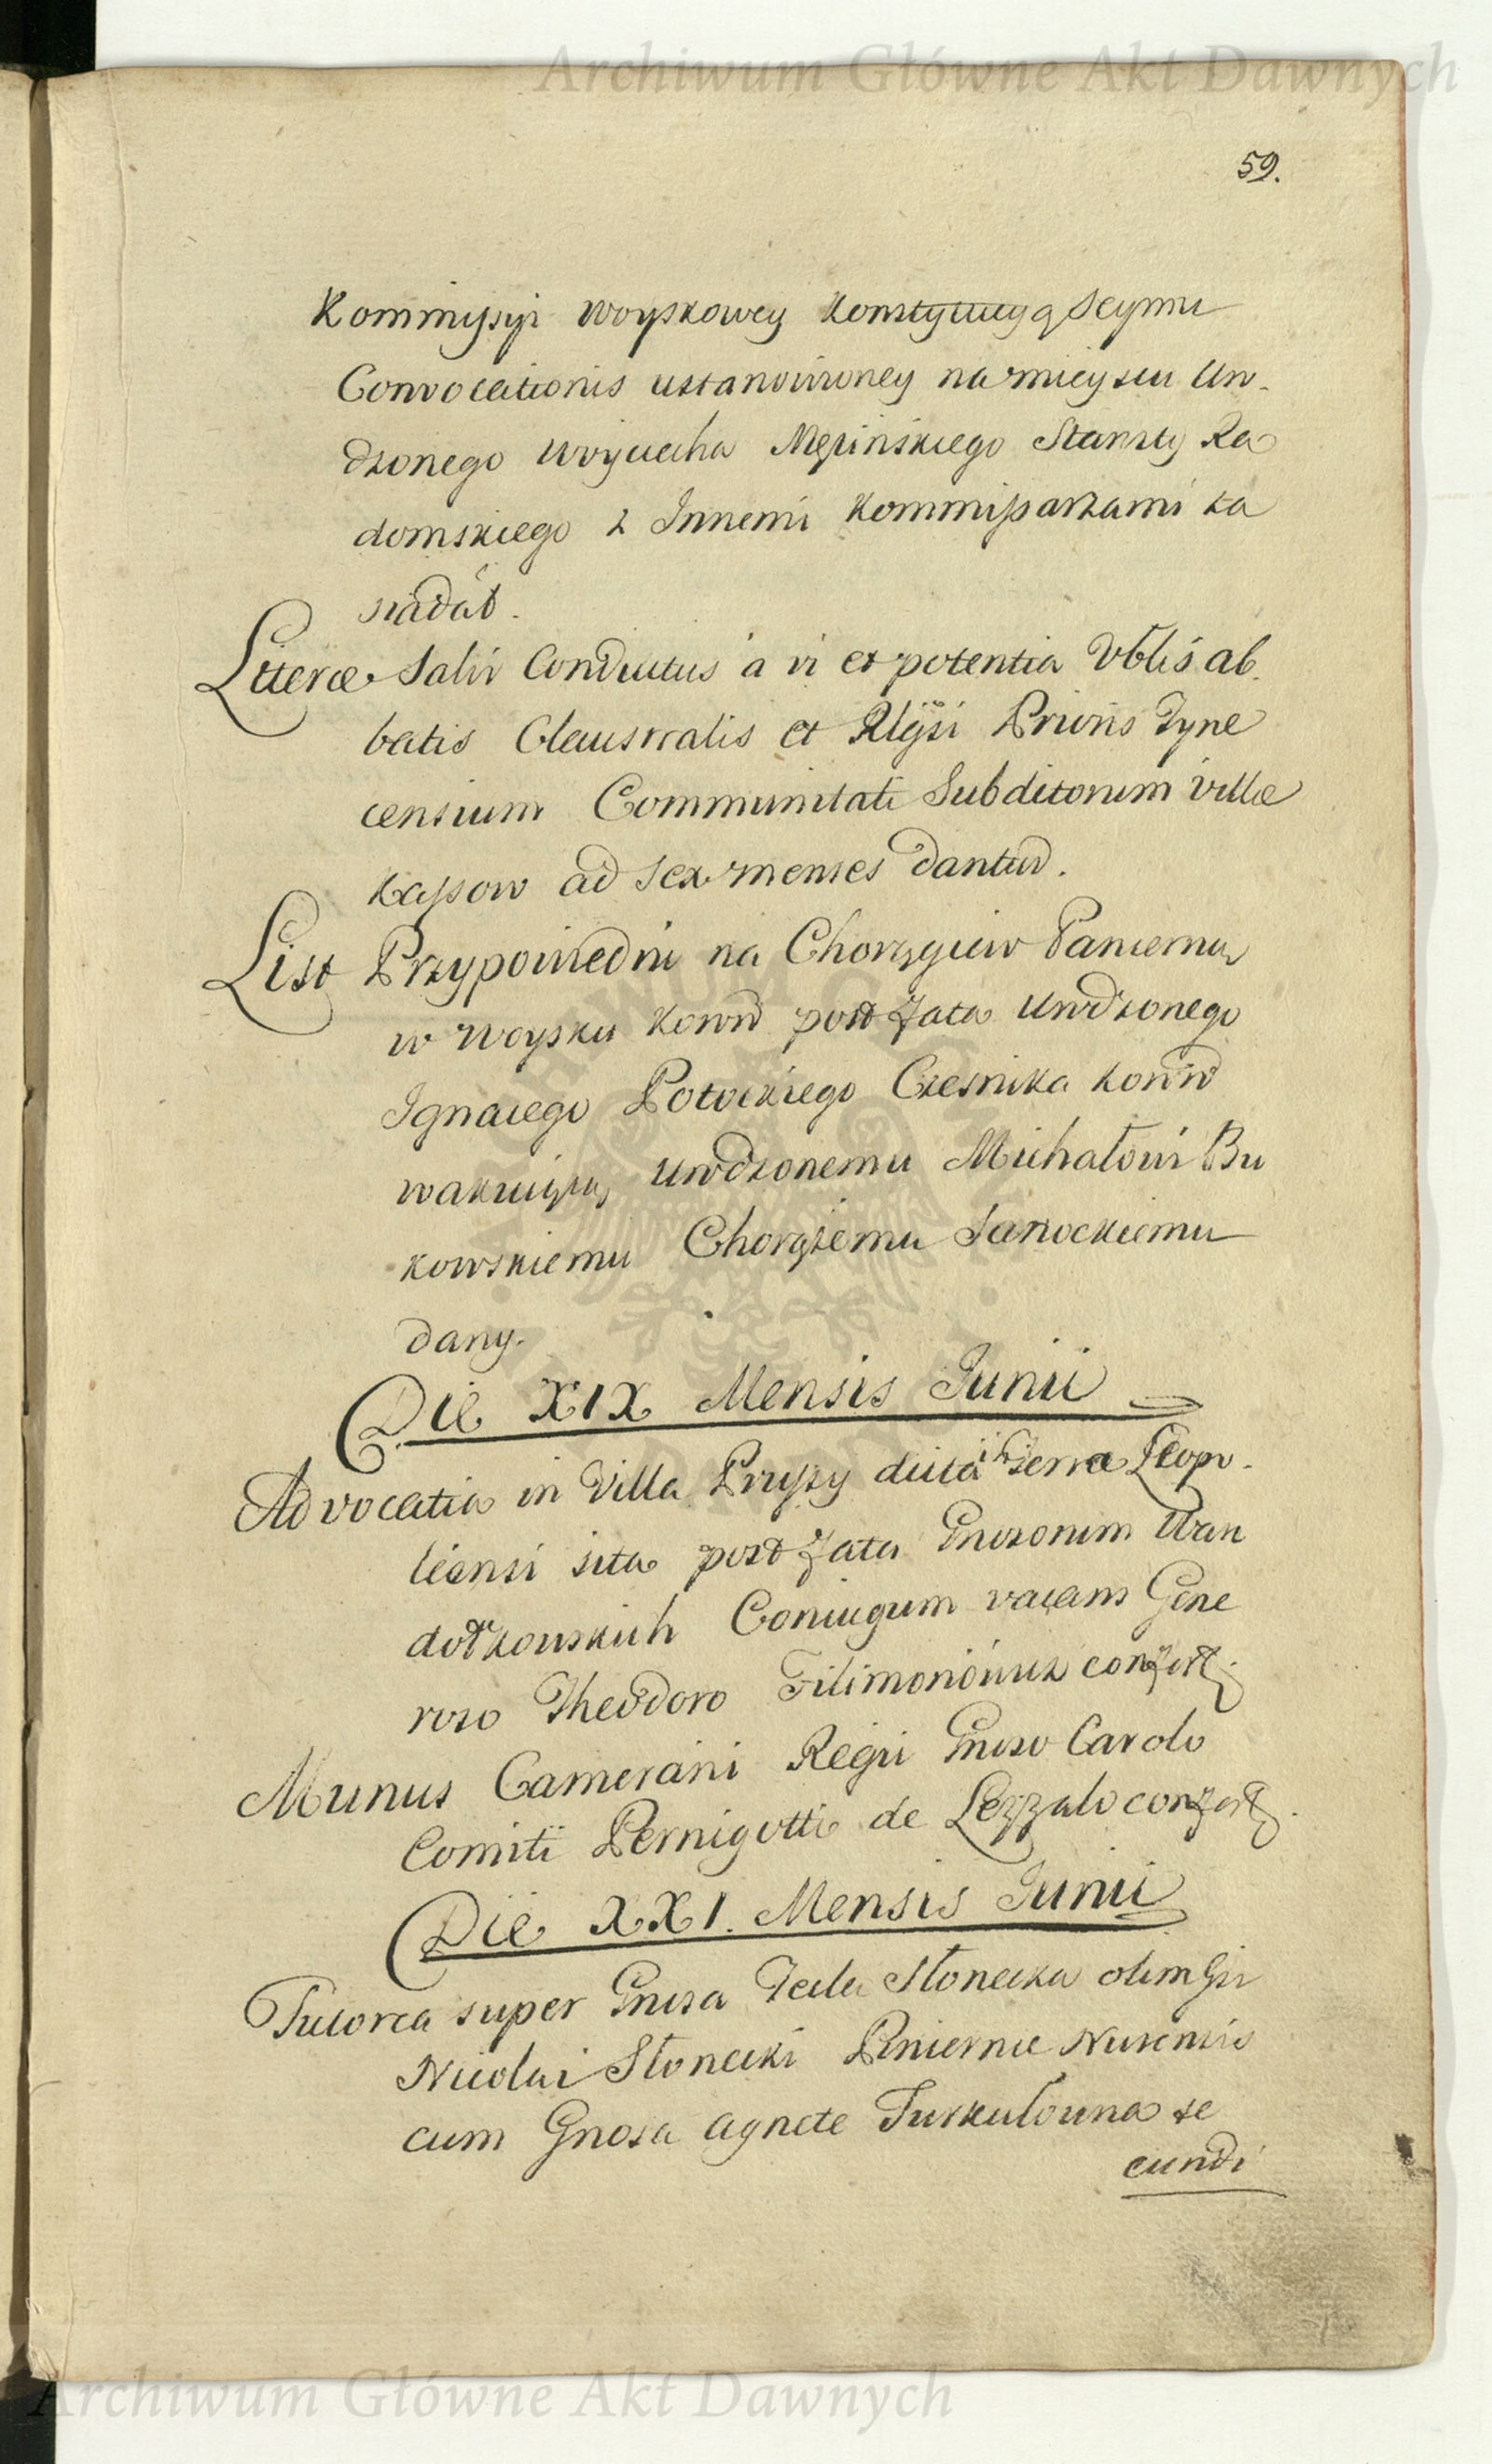 Archiwum Główne Akt Dawnych
59.
Kommissyi Woyskowey Konstytucyą Seymu
Convocationis ustanowioney na mieyscu Uro-
dzonego Woyciecha Męcinskiego Starosty Ra
domskiego z Innemi Kommissarzami za
siadał.
Literæ Salvi Conductus a vi et potentia Vblis ab
batis Claustralis et Rlgsi Prioris Tyne
censium Communitati Subditorum villæ
Kassow ad sex menses dantur.
List Przypowiedni na Chorągiew Pancerną
w Woysku Koronn post fata Urodzonego
Ignacego Potockiego Czesnika Koronn
wakuiącą Urodzonemu Michałowi Bu
kowskiemu Chorążemu Sanockiemu
dany.
Die XIX Mensis Junii
Advocatia in Villa Prussy dicta in Terra Leopo-
liensi sita post fata Gnosorum Wan
dołkowskich Coniugum vacans Gene
roso Theodoro Filimonowicz confert.
Munus Camerarii Regii Gnoso Carolo
Comiti Pernigotti de Lezzalo confert.
Die XXI. Mensis Junii
Tutorea super Gnosa Tecla Słonecka olim Gsi
Nicolai Słonecki Pincernæ Nurensis
cum Gnosa Agnete Turkułowna se
cundi
Archiwum Główne Akt Dawnych